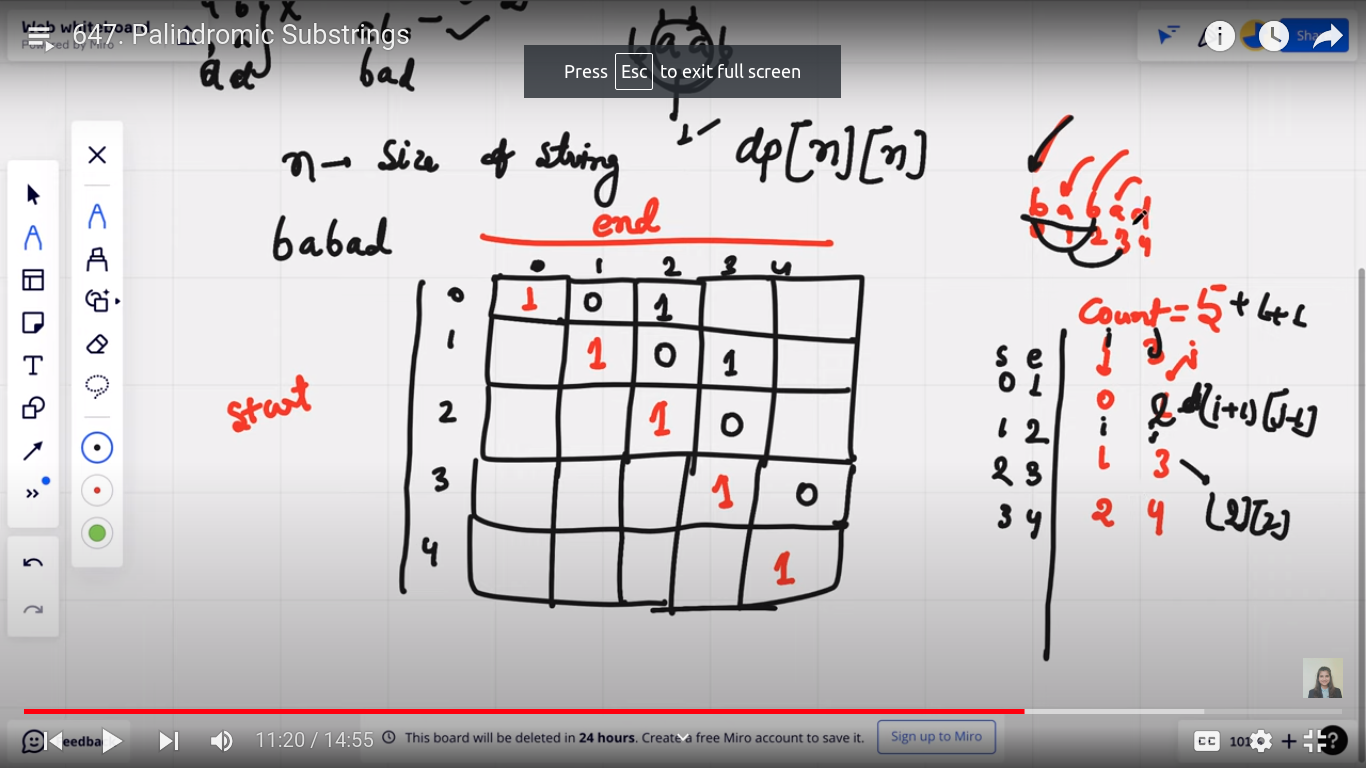 Web whiteboard
Powered by Miro
647. Palindromic Substrings
Press Esc to exit full screen
Sha
bad
b a a b
1
n → Size of string
dp[n][n]
babad
end
b a b a d
1 2 3 4
0 1 2 3 4
0 1 0 1
1 1 0 1
2 1 0
3 1 0
4 1
start
Count = 5 + 1 + 1
s e
0 1
1 2
2 3
3 4
0 2
[i+1][j-1]
i j
1 3
[2][2]
2 4
T
11:20 / 14:55
This board will be deleted in 24 hours. Create a free Miro account to save it.
Sign up to Miro
CC
101
+
?